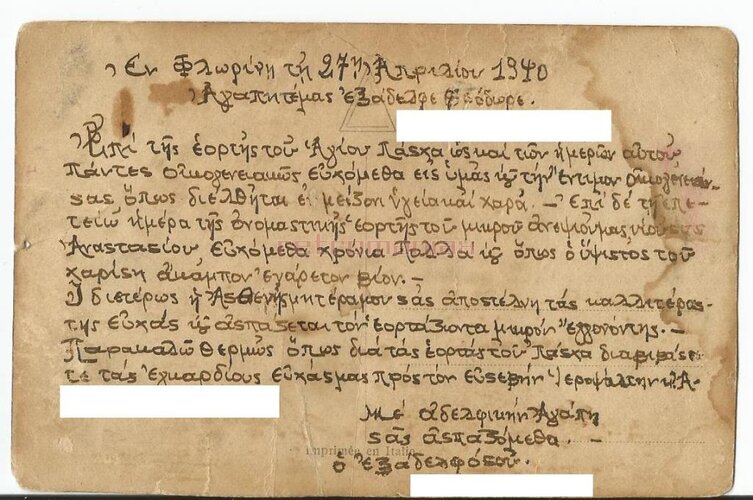 Ἐν Φλωρίνῃ τῇ 27ῃ Ἀπριλίου 1940
Ἀγαπητέ μας ἐξάδελφε Θεόδωρε.
Ἐπί τῆς ἑορτῆς τοῦ Ἁγίου Πάσχα ὡς καὶ τῶν ἡμερῶν αὐτοῦ
Πάντες οἰκογενειακῶς Εὐχόμεθα εἰς ὑμᾶς καὶ τὴν ἔντιμον οἰκογένειάν
σας ὅπως διέλθηται ἐν μείζον ὑγείᾳ καὶ χαρᾷ. — Ἐπὶ δὲ τῇ ἐπε-
τείῳ ἡμέρα τῆς ὀνομαστικῆς ἑορτῆς τοῦ μικροῦ ἀνεψιοῦ μας υἱοῦ σας
Ἀναστασίου Εὐχόμεθα χρόνια Πολλά καὶ ὅπως ὁ ὕψιστος τοῦ
χαρίσῃ ἐνάρετον βίον. —
Ἰδιετέρως ἡ Ἀσθενής μητέρα μου σᾶς ἀποστέλνῃ τάς καλλιτέρας
της Εὐχάς καὶ ἀσπάζεται τόν ἑορτάζοντα μικρόν ἔγγονόν της. —
Παρακαλῶ θερμῶς ὅπως διά τάς ἑορτάς τοῦ Πάσχα διαβιβάσε-
τε τάς ἐγκαρδίους Εὐχάς μας πρός τόν Εὐσεβῆν Ἱεροψάλτην κ. Ἀ-
Μέ ἀδελφικήν Ἀγάπη
σᾶς ἀσπαζόμεθα. —
Imprimée en Italie
ὁ Ἐξάδελφός σου.